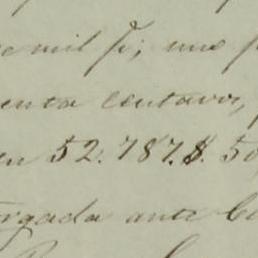 mil $; una
enta centavos,
en 52.787.$.50
rgada ante